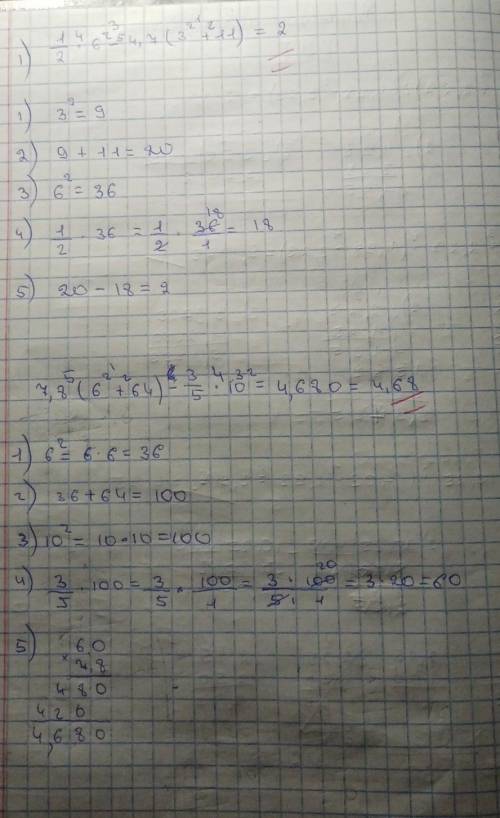 1) 1/2 · 6² - 4,7 (3² + 11) = 2
1) 3² = 9
2) 9 + 11 = 20
3) 6² = 36
4) 1/2 · 36 = 1/2 · 36/1 18 = 18
5) 20 - 18 = 2
7,8 (6² + 64) - 3/5 · 10² = 4,680 = 4,68
1) 6² = 6 · 6 = 36
2) 36 + 64 = 100
3) 10² = 10 · 10 = 100
4) 3/5 · 100 = 3/5 · 100/1 = 3 · 100 20/5 1 · 1 = 3 · 20 = 60
5) 6,0
× 7,8
480
420
4,680